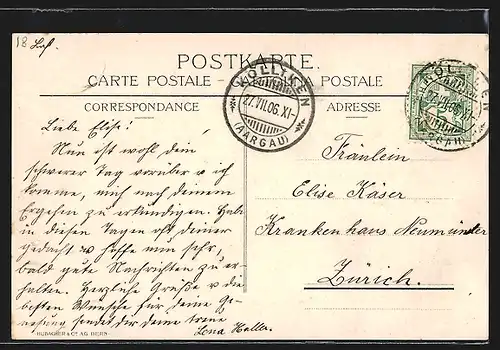 18 
POSTKARTE.
CARTE POSTALE – POSTALE
CORRESPONDANCE ADRESSE
KÖLLIKEN
27.VII.06.XI-
(AARGAU)
KÖLLIKEN
27.VII.06.XI-
(AARGAU)
Liebe Elise!
Nun ist wohl dein
schwerer Tag vorüber u ich
komme, mich nach deinem
Ergehen zu erkundigen. Hab
in diesen Tagen oft deiner
gedacht u hoffe nun sehr,
bald gute Nachrichten zu er-
halten. Herzliche Grüße u die
besten Wünsche für deine Ge-
nesung sendet dir deine treue
Lena Haller
Fräulein
Elise Käser
Krankenhaus Neumünster
Zürich.
HUBACHER & Cº. A.G. BERN